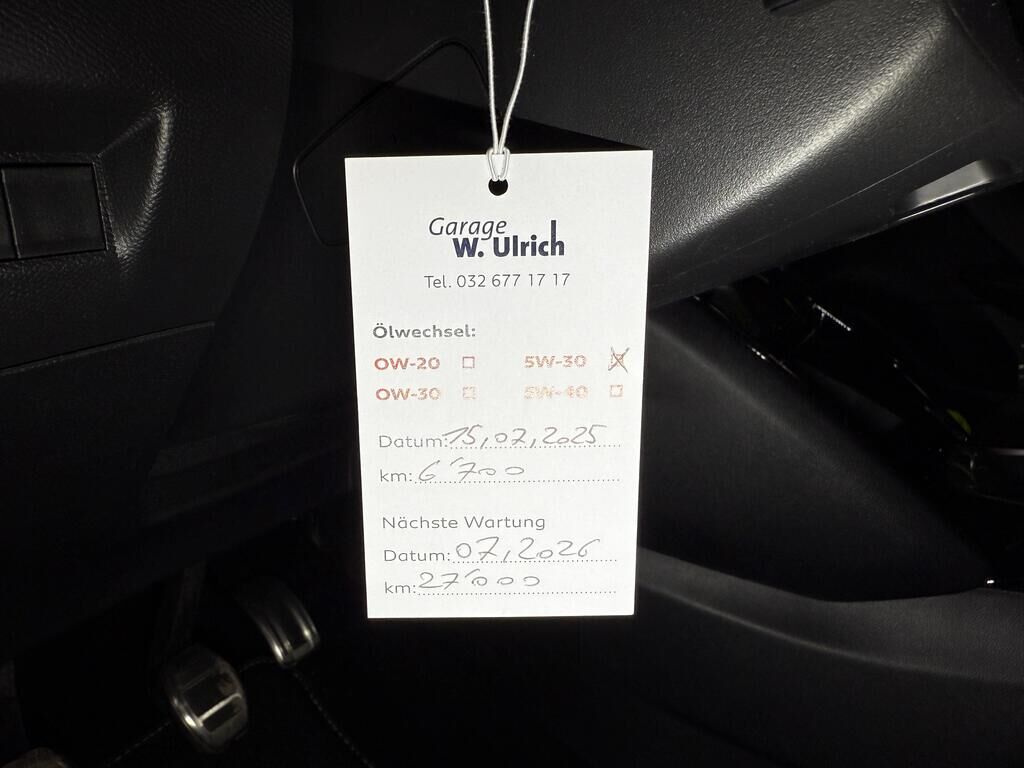 Garage
W. Ulrich
Tel. 032 677 17 17
Ölwechsel:
0W-20 ☐ 5W-30 ☒
0W-30 ☐ 5W-40 ☐
Datum: 15,07,2025
km: 6'700
Nächste Wartung
Datum: 07,2026
km: 27'000